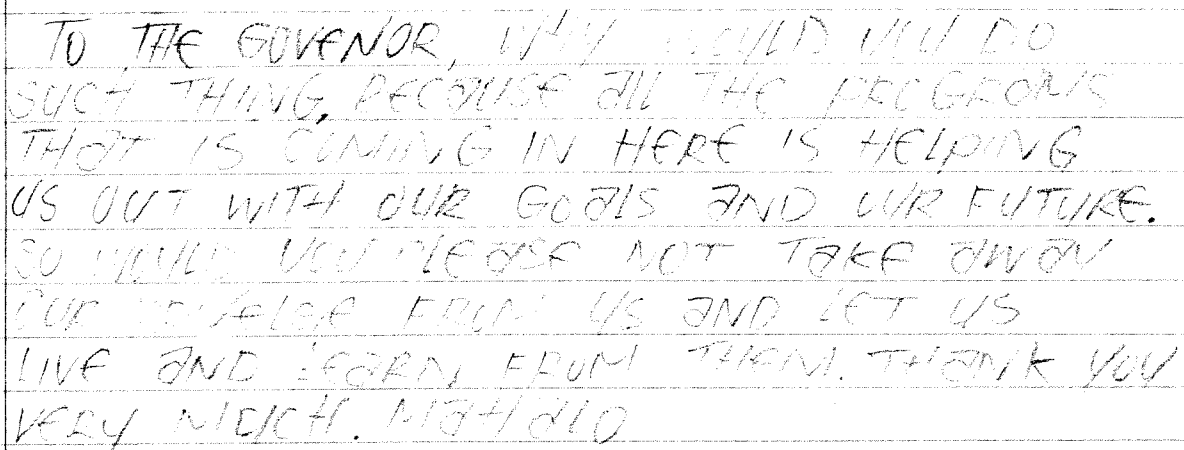 TO THE GOVENOR, WHY WOULD YOU DO
SUCH THING, BECAUSE all THE PROGRAMS
THaT IS COMING IN HERE IS HELPING
US OUT WITH OUR GOalS aND OUR FUTURE.
SO WOULD YOU PLEaSE NOT TaKE aWaY
OUR FROM US aND LET US
LIVE aND LEaRN FROM THEM. THaNK YOU
VERY MUCH. MaHalO